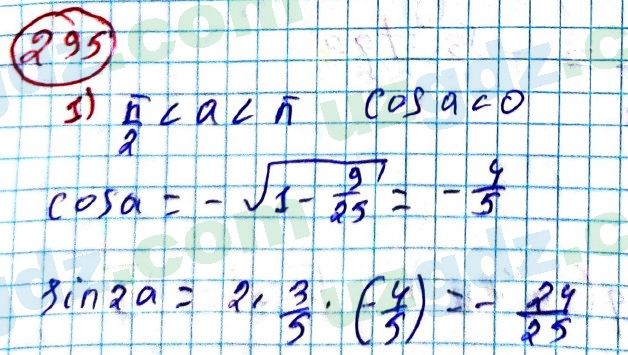 295
1) π/2 < a < π cos a < 0
cos a = - √(1 - 9/25) = - 4/5
sin2a = 2 · 3/5 · (-4/5) = - 24/25